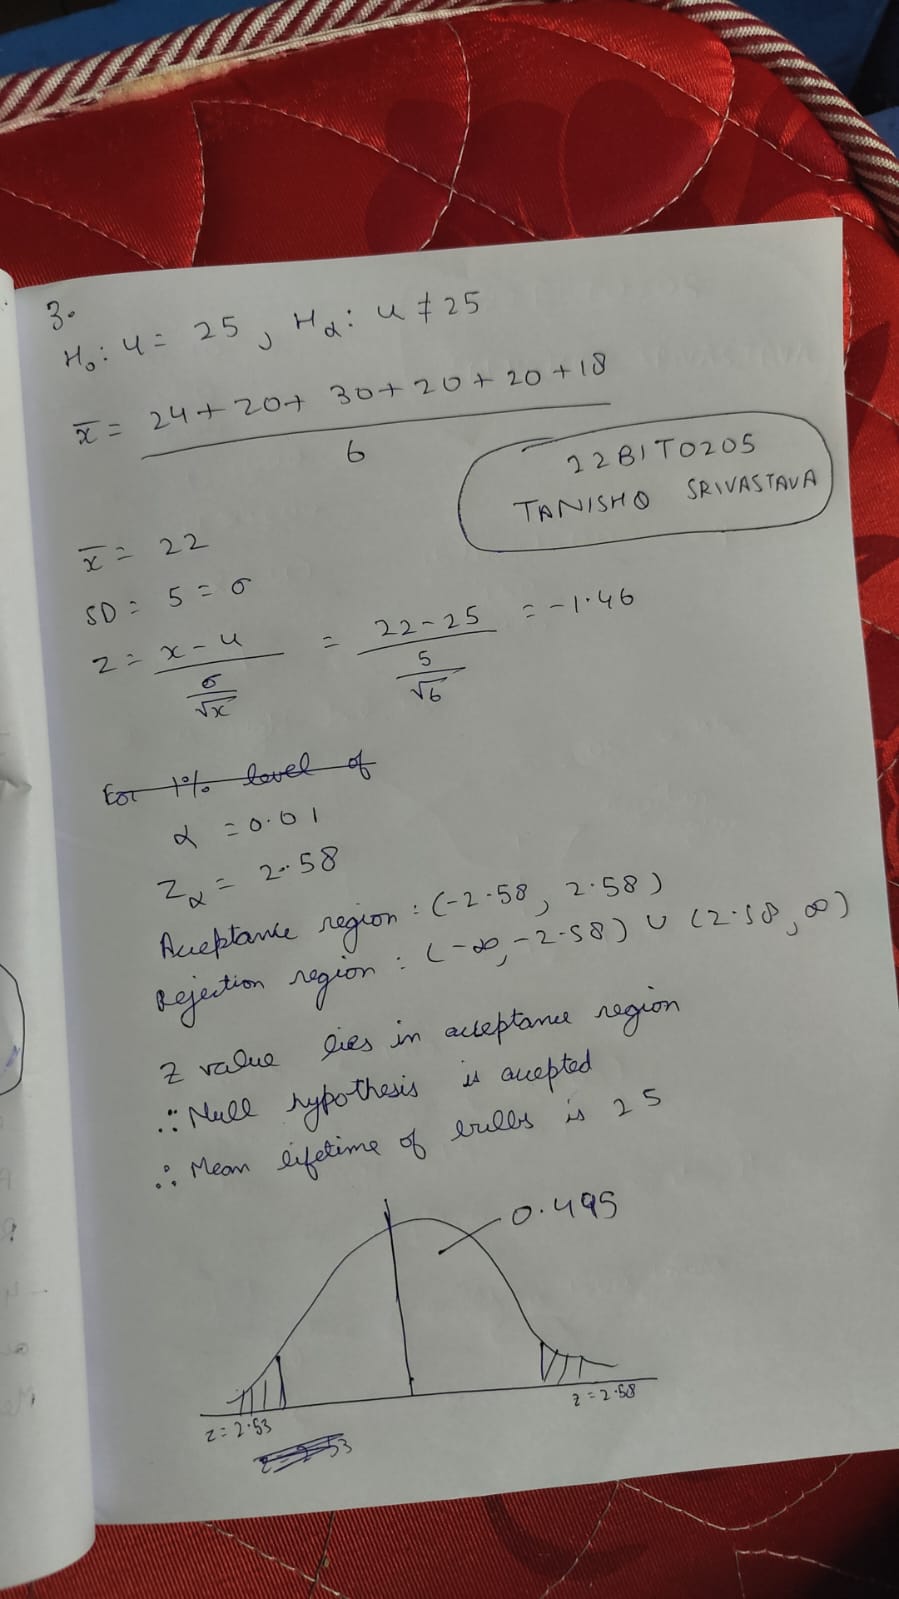 3.
H₀: u = 25, Hα: u ≠ 25
x̄ = (24 + 20 + 30 + 20 + 20 + 18) / 6
22BIT0205
TANISHQ SRIVASTAVA
x̄ = 22
SD = 5 = σ
z = (x - u) / (σ/√x) = (22 - 25) / (5/√6) = -1.46
For 1% level of
α = 0.01
Zα = 2.58
Acceptance region: (-2.58, 2.58)
Rejection region: (-∞, -2.58) ∪ (2.58, ∞)
Z value lies in acceptance region
∴ Null hypothesis is accepted
∴ Mean lifetime of bulbs is 25
0.495
z = 2.53
z = 2.58
z = 2.53